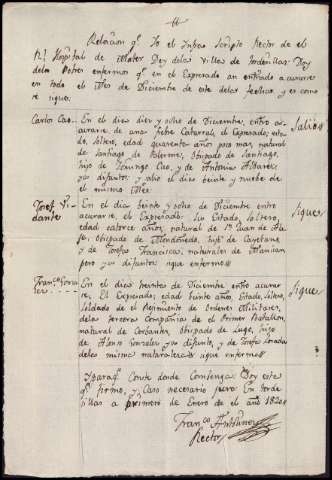 Relacion qe. Yo el Infras Scripto Rector de el
Rl. Hospital de Mater Dey de la Villa de tordesillas Doy
de los Pobres enfermos qe. en el Expresado an entrado a curarse
en todo el Mes de Diciembre de este de la fecha, y es como
se sigue.
Carlos Cao En el dia diez y ocho de Diciembre, entro a
curarse, de una fiebre Catarral, el Expresado; esta
do, Soltero, edad quarenta años poco mas, natural
de Santiago de obispado de Santiago,
hijo de Domingo Cao, y de Antonia Albarez
ya difunta. y salio el dia beinte y nuebe de
el mismo Mes
Salio
Josef En el dia beinte y ocho de Diciembre entro
dante a curarse, el Expresado. Su Estado, Soltero,
edad catorce años, natural de Sn. Juan de
obispado de Mondoñedo, hijo de Cayetano
y de Josefa Francisca, naturales de
pero ya difuntos: sigue enfermo
Sigue
Franco. En el dia treinta de Diciembre entro a curar
se, El Expresado; edad beinte años, Estado, Soltero,
Soldado de el Regimiento de Ordenes Militares,
de la tercera Compañia de el Primer Batallon,
natural de Cerbantes, Obispado de Lugo, hijo
de Alonso Gonzalez ya difunto, y de Josefa
de la misma naturaleza sigue enfermo
Sigue
Y para qe. Conste donde Combenga Doy este
qe. firmo, y Caso necesario juro En torde
sillas a primero de Enero de el año 1820
Franco. Antolinez
Rector